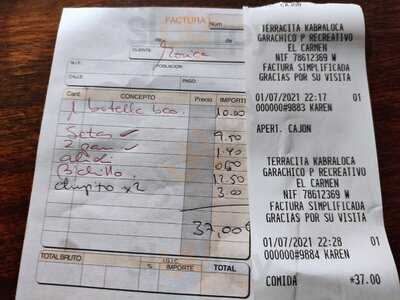 FACTURA Núm.
de de
CLIENTE Monica
N.I.F. POBLACIÓN
CALLE PASO
Cant. CONCEPTO Precio IMPORTE
1 botella bco. 10.00
Setas 9.50
2 pan 1.40
alioli 0.60
Bichillo 12.50
chupito x2 3.00
37,00€
TOTAL BRUTO I.G.I.C. TOTAL
% IMPORTE
CAJON
TERRACITA KABRALOCA
GARACHICO P RECREATIVO
EL CARMEN
NIF 78612369 W
FACTURA SIMPLIFICADA
GRACIAS POR SU VISITA
01/07/2021 22:17 01
000000#9883 KAREN
APERT. CAJON
TERRACITA KABRALOCA
GARACHICO P RECREATIVO
EL CARMEN
NIF 78612369 W
FACTURA SIMPLIFICADA
GRACIAS POR SU VISITA
01/07/2021 22:28 01
000000#9884 KAREN
COMIDA *37.00